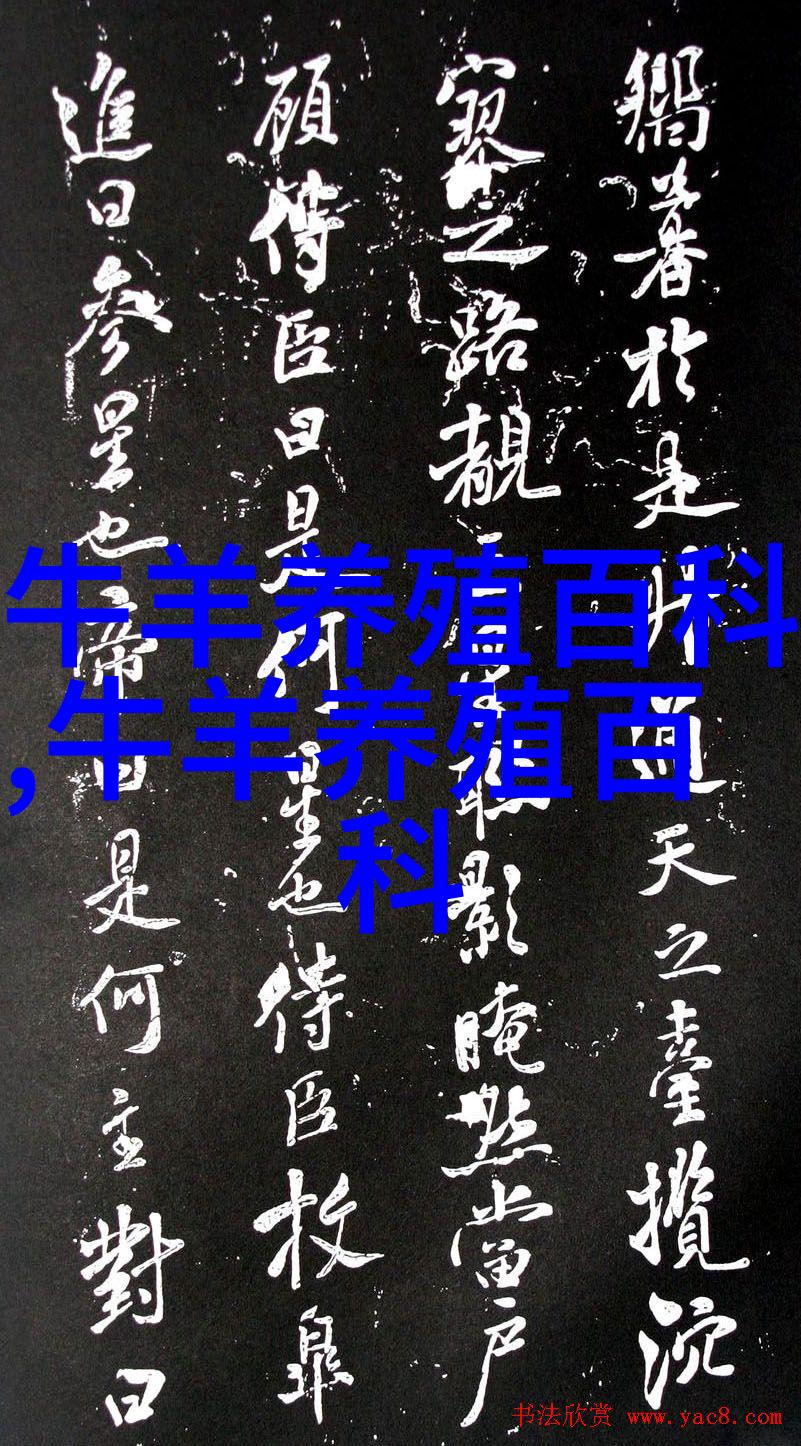 於是升通天之臺攬泬
寥之路覩三星聯影晻然當戶
顧侍臣曰是何星也侍臣枚皋
進曰參星也帝曰是何主對曰
牛羊养殖百科
,牛羊养殖百
科
书法欣赏 www.yac8.com